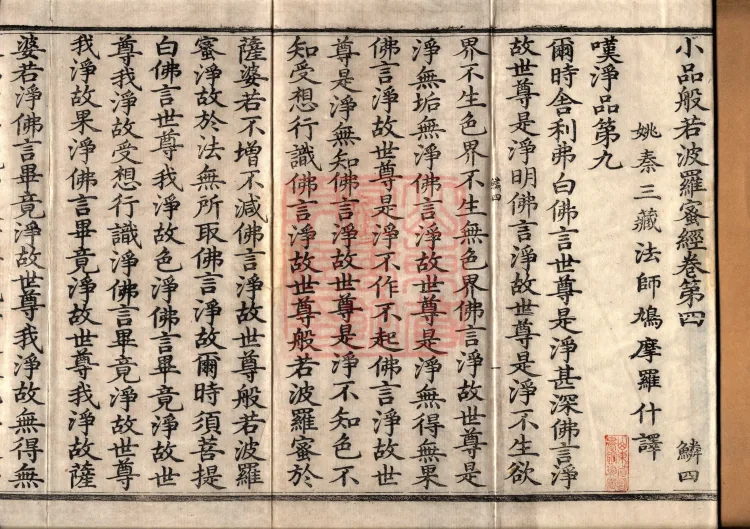 小品般若波羅蜜經卷第四 鱗四
姚秦三藏法師鳩摩羅什譯
嘆淨品第九
爾時舍利弗白佛言世尊是淨甚深佛言淨
故世尊是淨明佛言淨故世尊是淨不生欲
界不生色界不生無色界佛言淨故世尊是
淨無垢無淨佛言淨故世尊是淨無得無果
佛言淨故世尊是淨不作不起佛言淨故世
尊是淨無知佛言淨故世尊是淨不知色不
知受想行識佛言淨故世尊般若波羅蜜於
薩婆若不增不減佛言淨故世尊般若波羅
蜜淨故於法無所取佛言淨故爾時須菩提
白佛言世尊我淨故色淨佛言畢竟淨故世
尊我淨故受想行識淨佛言畢竟淨故世尊
我淨故果淨佛言畢竟淨故世尊我淨故薩
婆若淨佛言畢竟淨故世尊我淨故無得無